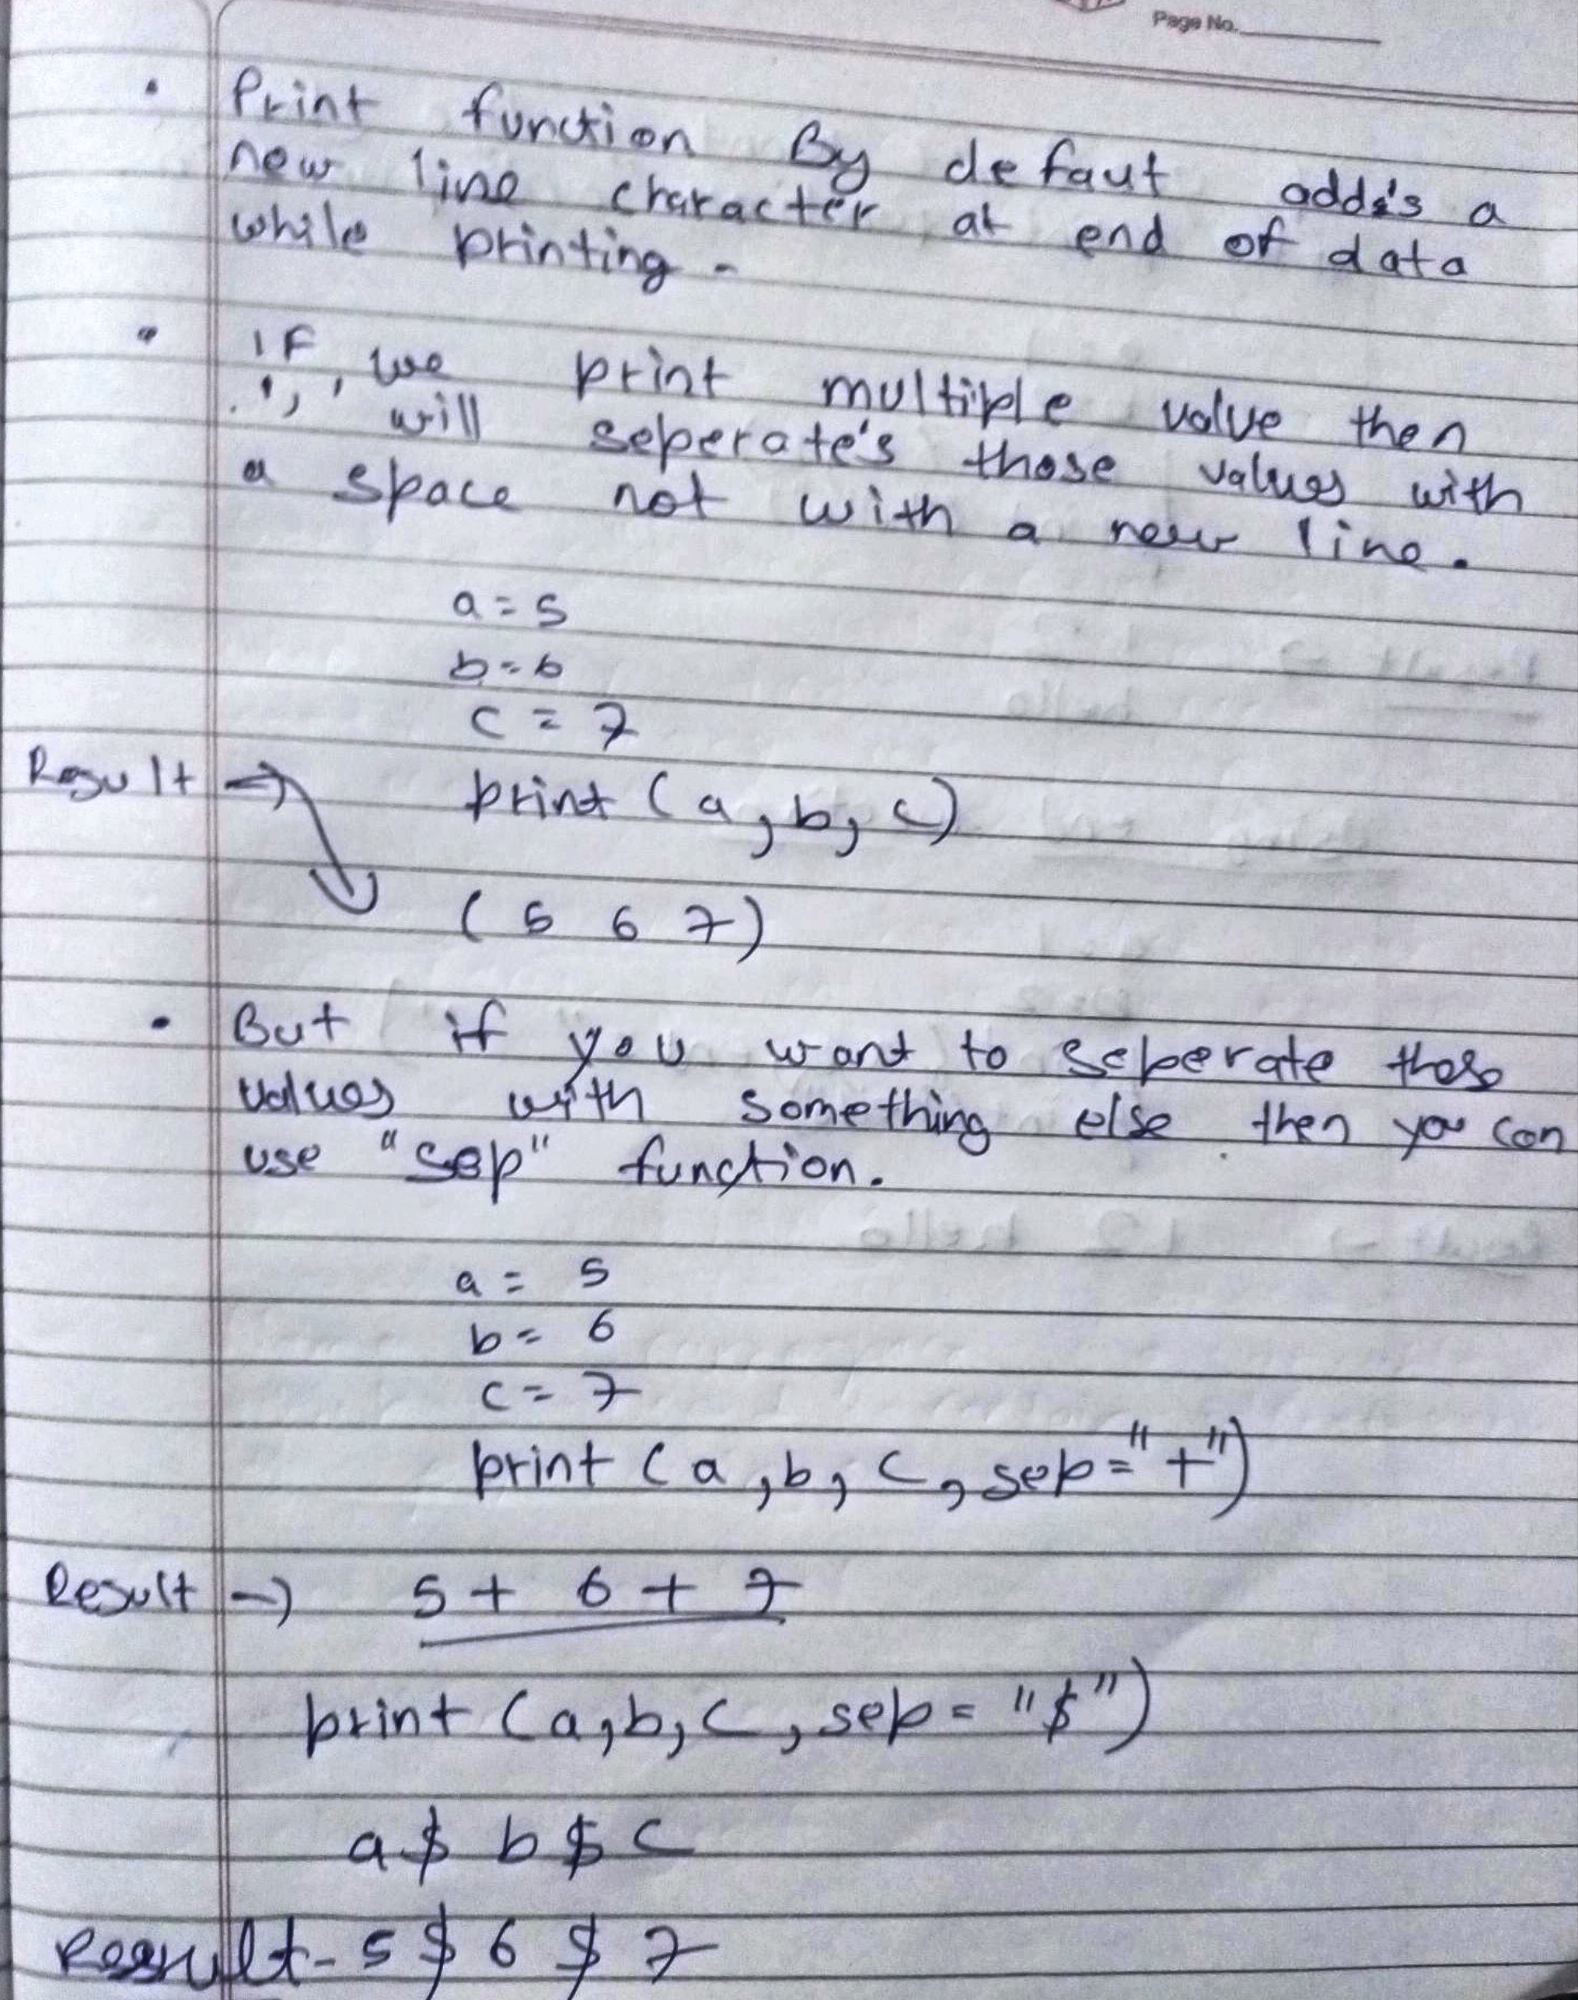 Page No.
• Print function By defaut adds's a
new line character at end of data
while printing -
• IF we print multiple value then
',' will seperate's those values with
a space not with a new line.
a = 5
b = 6
c = 7
Result → print (a, b, c)
( 5 6 7 )
• But if you want to seperate those
values with something else then you can
use "sep" function.
a = 5
b = 6
c = 7
print (a, b, c, sep="+")
Result → 5 + 6 + 7
print (a, b, c, sep = "$")
a $ b $ c
Result - 5 $ 6 $ 7